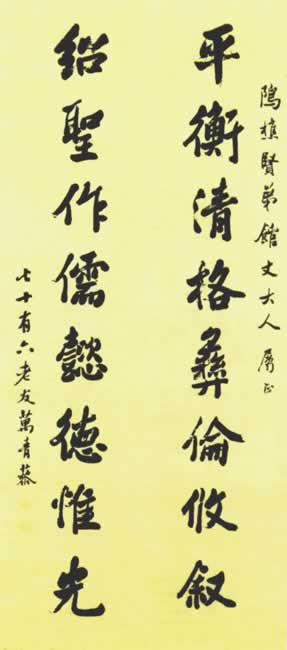 隖樵賢弟館丈大人 屬正
平衡清格彝倫攸叙
紹聖作儒懿德惟光
七十有六老友萬青藜